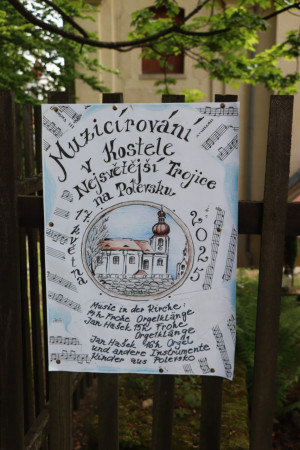 Muzicírování
v Kostele
Nejsvětější Trojice
na Polevsku
17. května
2025
Music in der Kirche:
14h Frohe Orgelklänge
Jan Hašek 15h Frohe
Orgelklänge
Jan Hašek 16h Orgel
und andere Instrumente
Kinder aus Polevsko